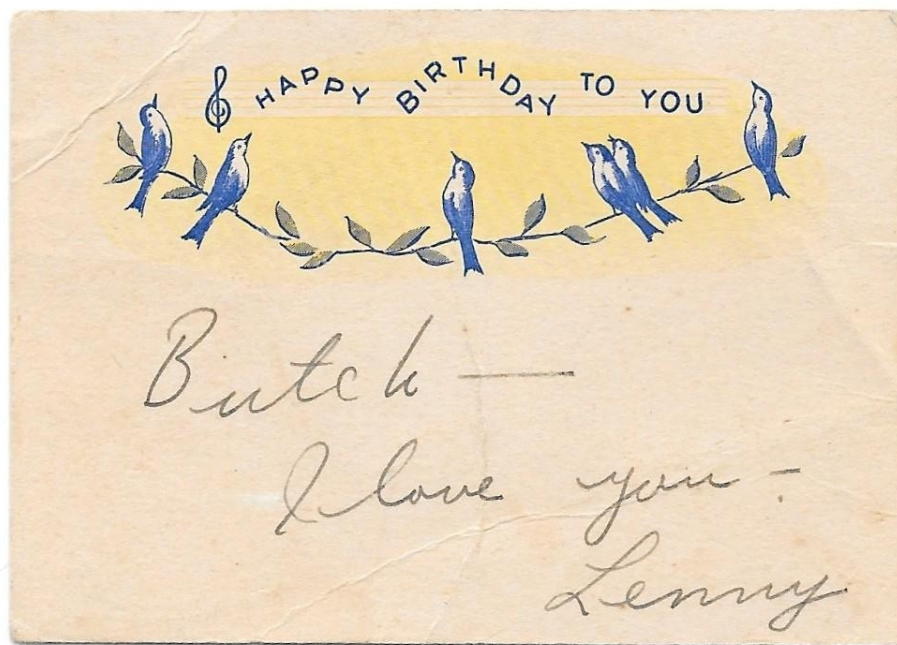 HAPPY BIRTHDAY TO YOU
Butch —
I love you -
Lenny